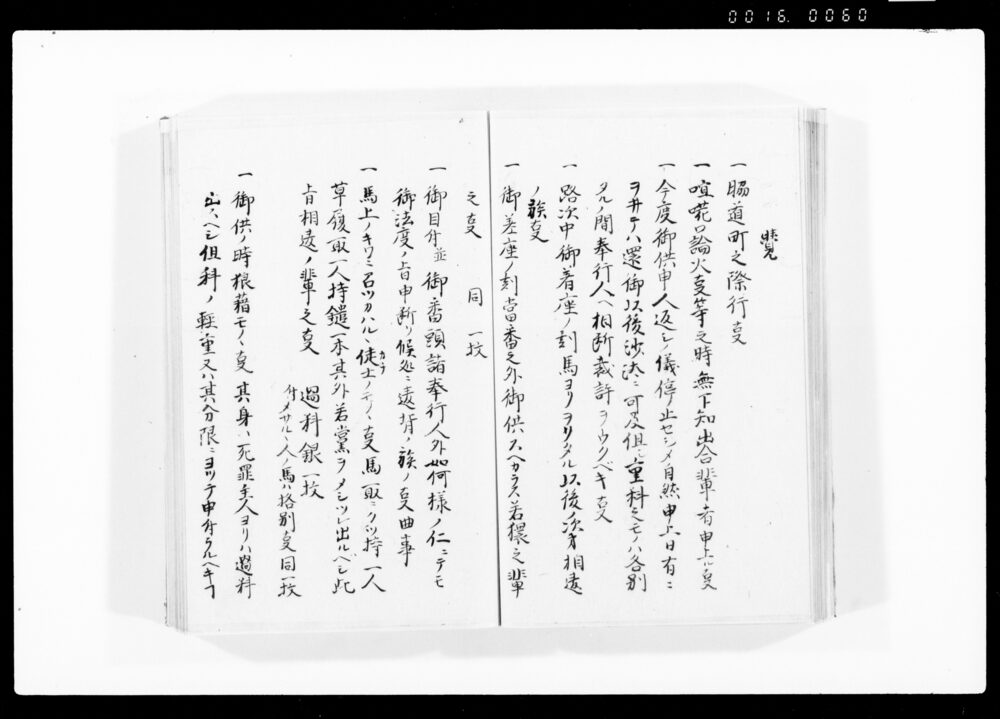 0016. 0060
覚
一 脇道町之際行事
一 喧嘩口論火事等之時無下知出合輩者申上ル事
一 今度御供申人返シノ儀停止セシメ自然申上日有ニ
ヲ井テハ還御以後沙汰ニ可及但シ重科之モノハ各別
タルノ間奉行人ヘ相断裁許ヲウクベキ事
一 路次中御着座ノ刻馬ヨリヲリタル以後ノ次才相違
ノ族事
一 御差座ノ刻當番之外御供スヘカラス若猥之輩
之事 同一枚
一 御目付並御番頭諸奉行人外如何様ノ仁ニテモ
御法度ノ旨申断リ候処ニ違背ノ族ノ事曲事
一 馬上ノキワミ石ツカハルヽ徒士ノモノヽ事馬取ニクツ持一人
草履取一人持鑓一本其外若黨ヲメシツレ出ルベシ此
旨相違ノ輩之事 過料銀一枚
付メサルヽ人ノ馬ハ格別事同一枚
一 御供ノ時狼藉モノヽ事其身ハ死罪主人ヨリハ過料
出スヘシ但科ノ軽重又ハ其分限ニヨツテ申付タルヘキヿ